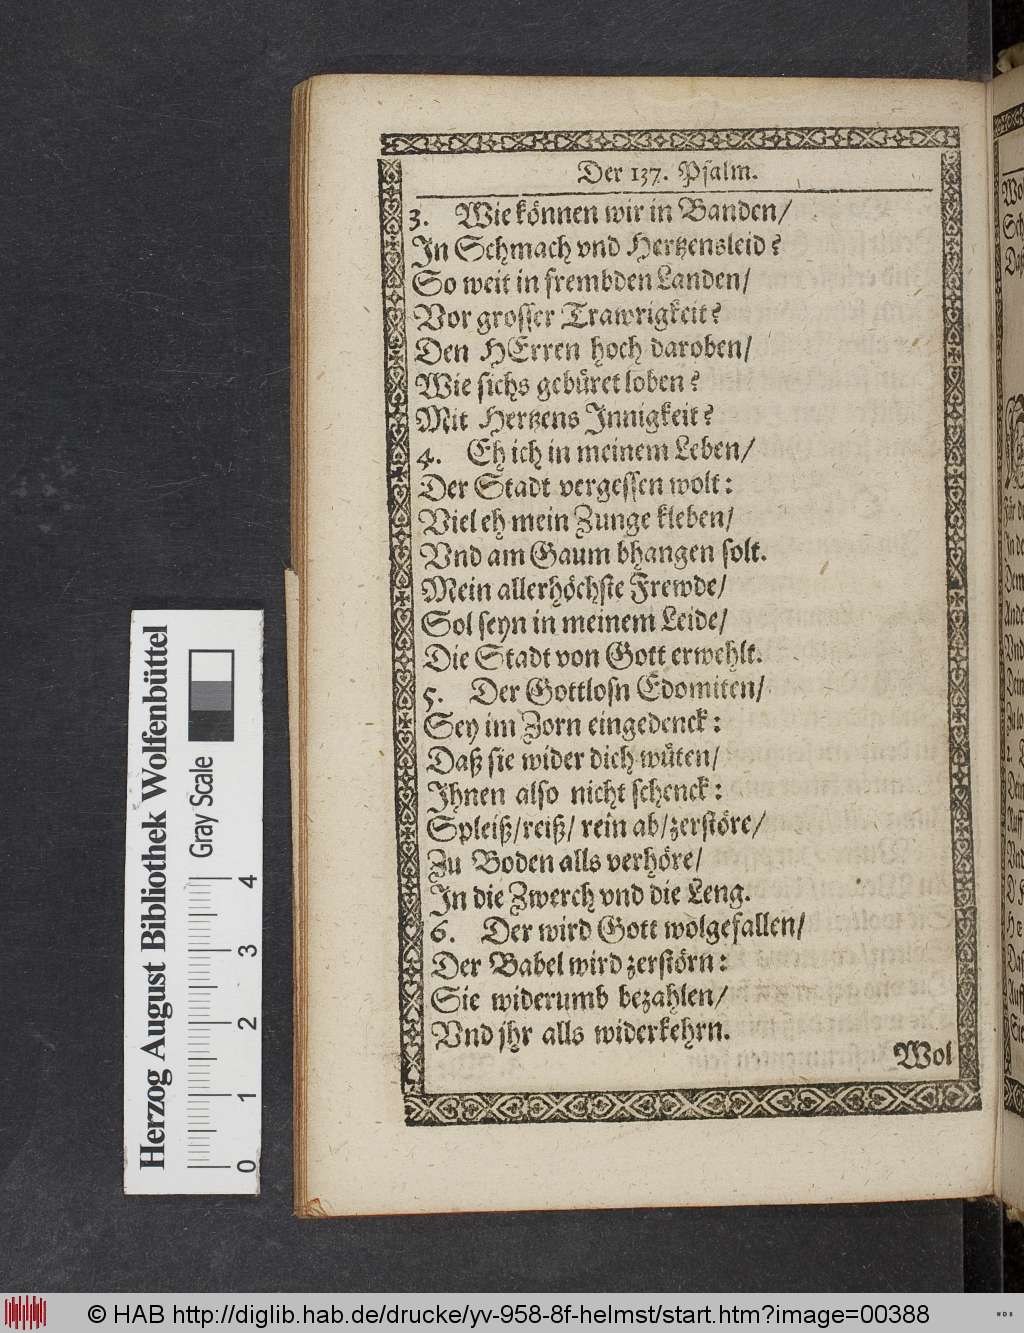 Der 137. Psalm.
3. Wie können wir in Banden/
In Schmach vnd Hertzensleid?
So weit in frembden Landen/
Vor grosser Trawrigkeit?
Den HErren hoch daroben/
Wie sichs gebüret loben?
Mit Hertzens Innigkeit?
4. Eh ich in meinem Leben/
Der Stadt vergessen wolt:
Viel eh mein Zunge kleben/
Vnd am Gaum bhangen solt.
Mein allerhöchste Frewde/
Sol seyn in meinem Leide/
Die Stadt von Gott erwehlt.
5. Der Gottlosn Edomiten/
Sey im Zorn eingedenck:
Daß sie wider dich wüten/
Ihnen also nicht schenck:
Spleiß/reiß/ rein ab/zerstöre/
Zu Boden alls verhöre/
In die Zwerch vnd die Leng.
6. Der wird Gott wolgefallen/
Der Babel wird zerstörn:
Sie widerumb bezahlen/
Vnd jhr alls widerkehrn.
Wol
Herzog August Bibliothek Wolfenbüttel
Gray Scale
0 1 2 3 4
© HAB http://diglib.hab.de/drucke/yv-958-8f-helmst/start.htm?image=00388